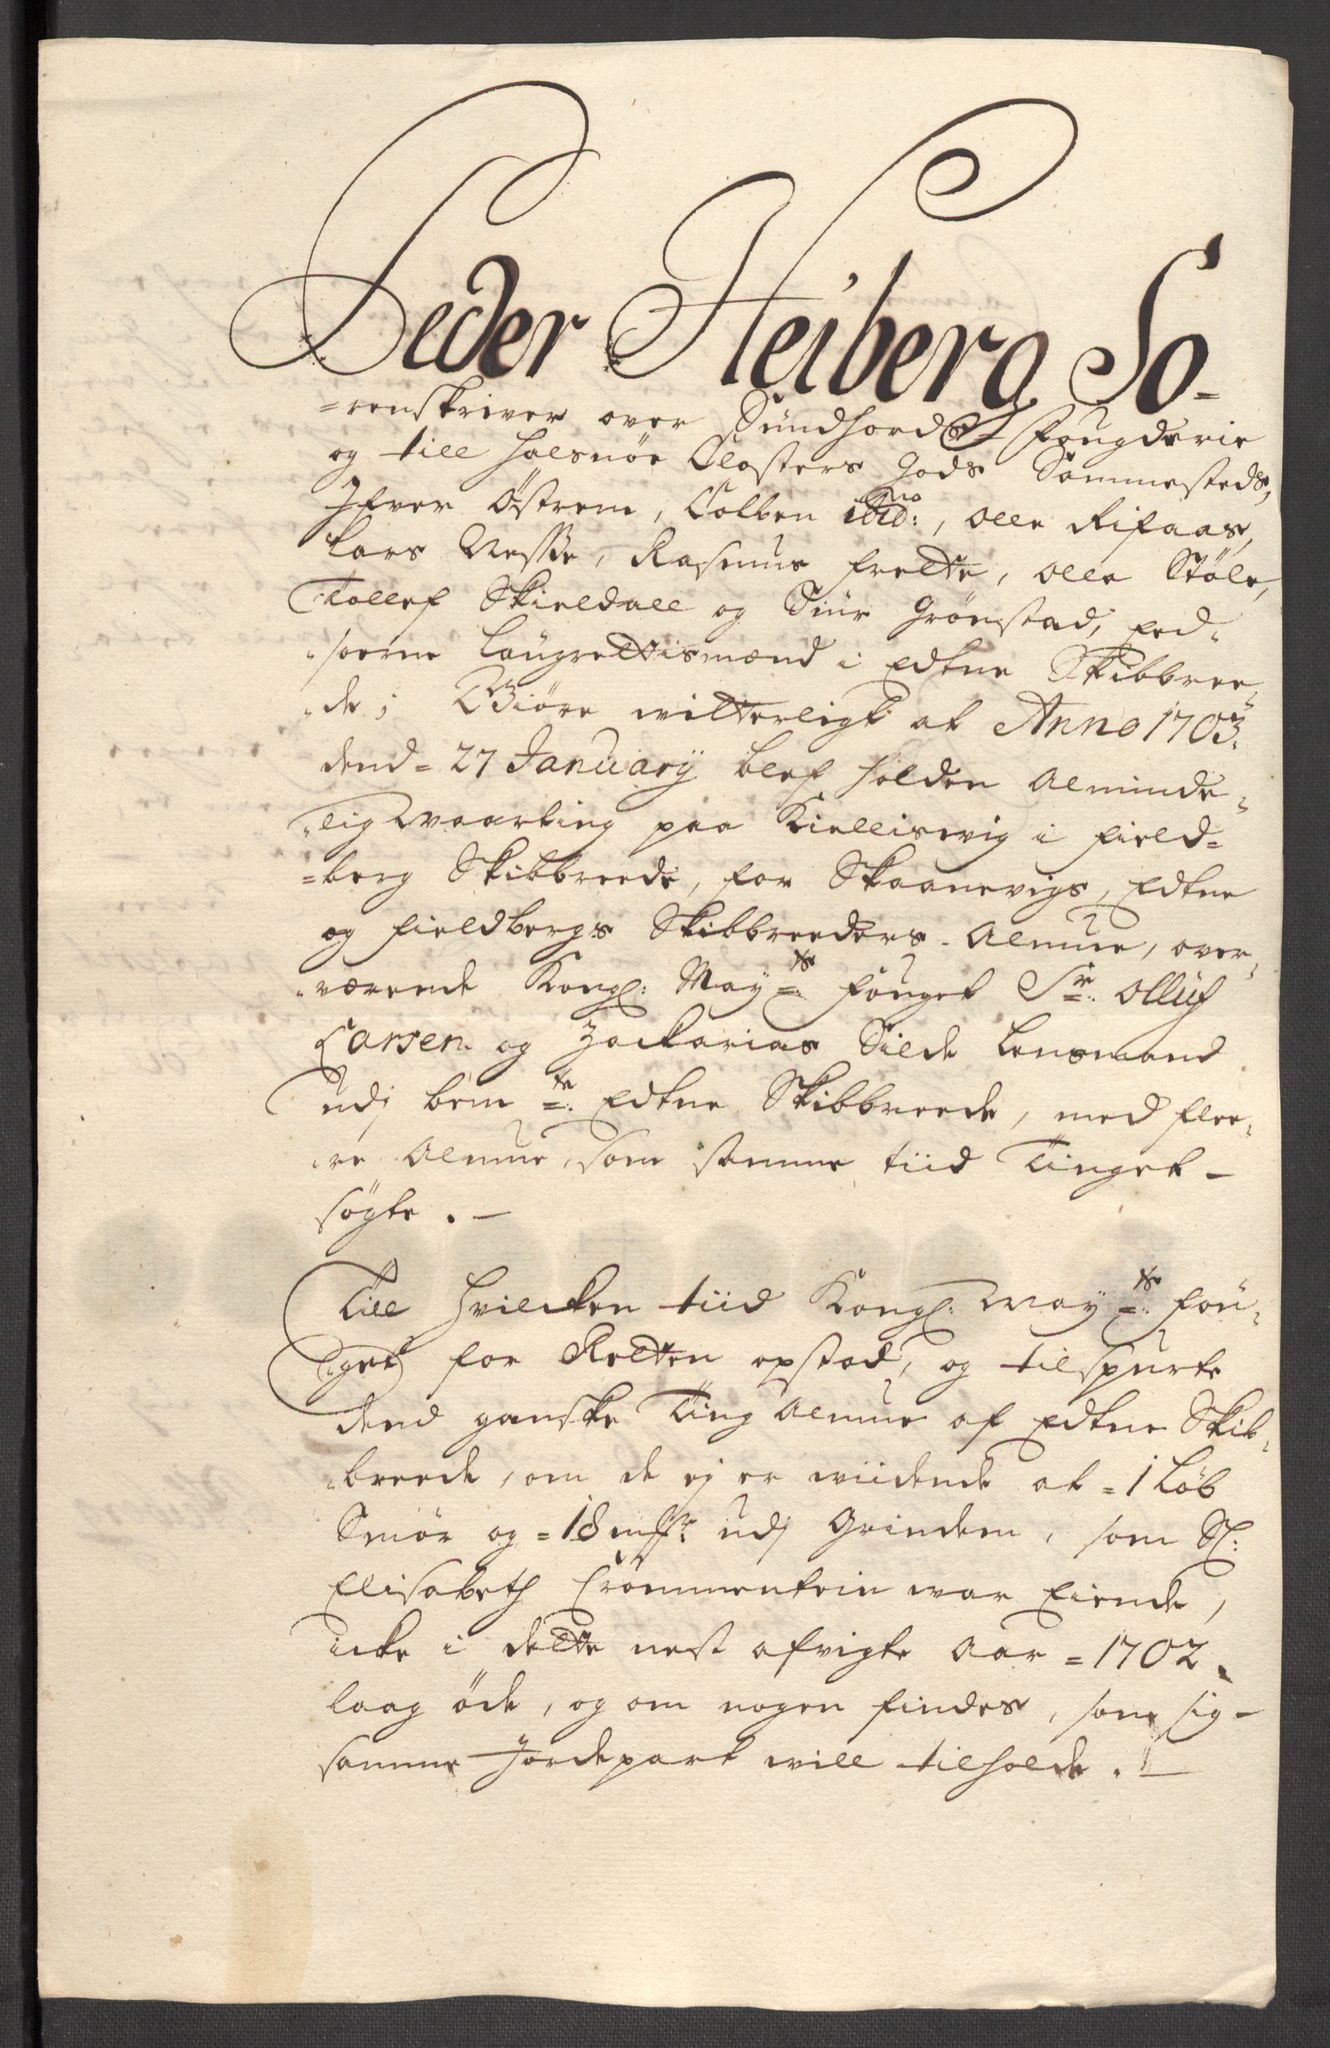 Peder Heiberg So-
=renskriver over Sundhords Fougderie
og till Halsnöe Closters Gods Sammesteds,
Ifver Östrem, Colben ibid:, Olle Rifaas,
Lars Nesse, Rasmus Frette, Olle Støle,
Tollef Skieldall og Siur Grönstad, Eed-
soerne Laugrettismænd i Edtne Skibbree-
de; Giöre witterligt at Anno 1703.
dend= 27 January blef holden Alminde-
lig Waarting paa Kiellisvig i Field=
=berg Skibbreede, for Skaanevigs, Edtne
og Fieldbergs Skibbreeders Almue, over-
værende Kongl: Mayts: Fouget Sr: Olluf
Larsen og Zackarias Silde Lensmand
udj bemte: Edtne Skibbreede, med flee-
re Almue, som samme tiid Tinget-
søgte. —
Till hvilcken tiid Kongl: Mayts: Fou-
get for Retten opstod, og tilspurte
dend ganske Ting Almue af Edtne Skib-
breede, om de ej er widende at =1 Løb
Smør og =18 mkr: udj Grindem, som Sl:
Elisabeth Crommentein war Eiende,
icke i dette nest afvigte Aar =1702.
laag øde, og om nogen findes, som sig-
samme Jordepart will tilholde. —